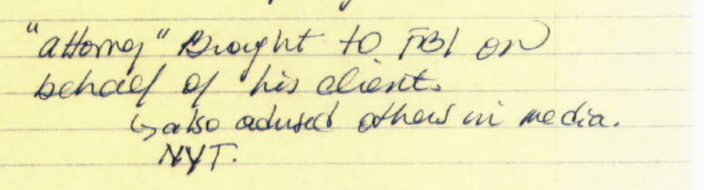 "attorney" Brought to FBI on
behalf of his client.
↳ also advised others in media.
NYT.